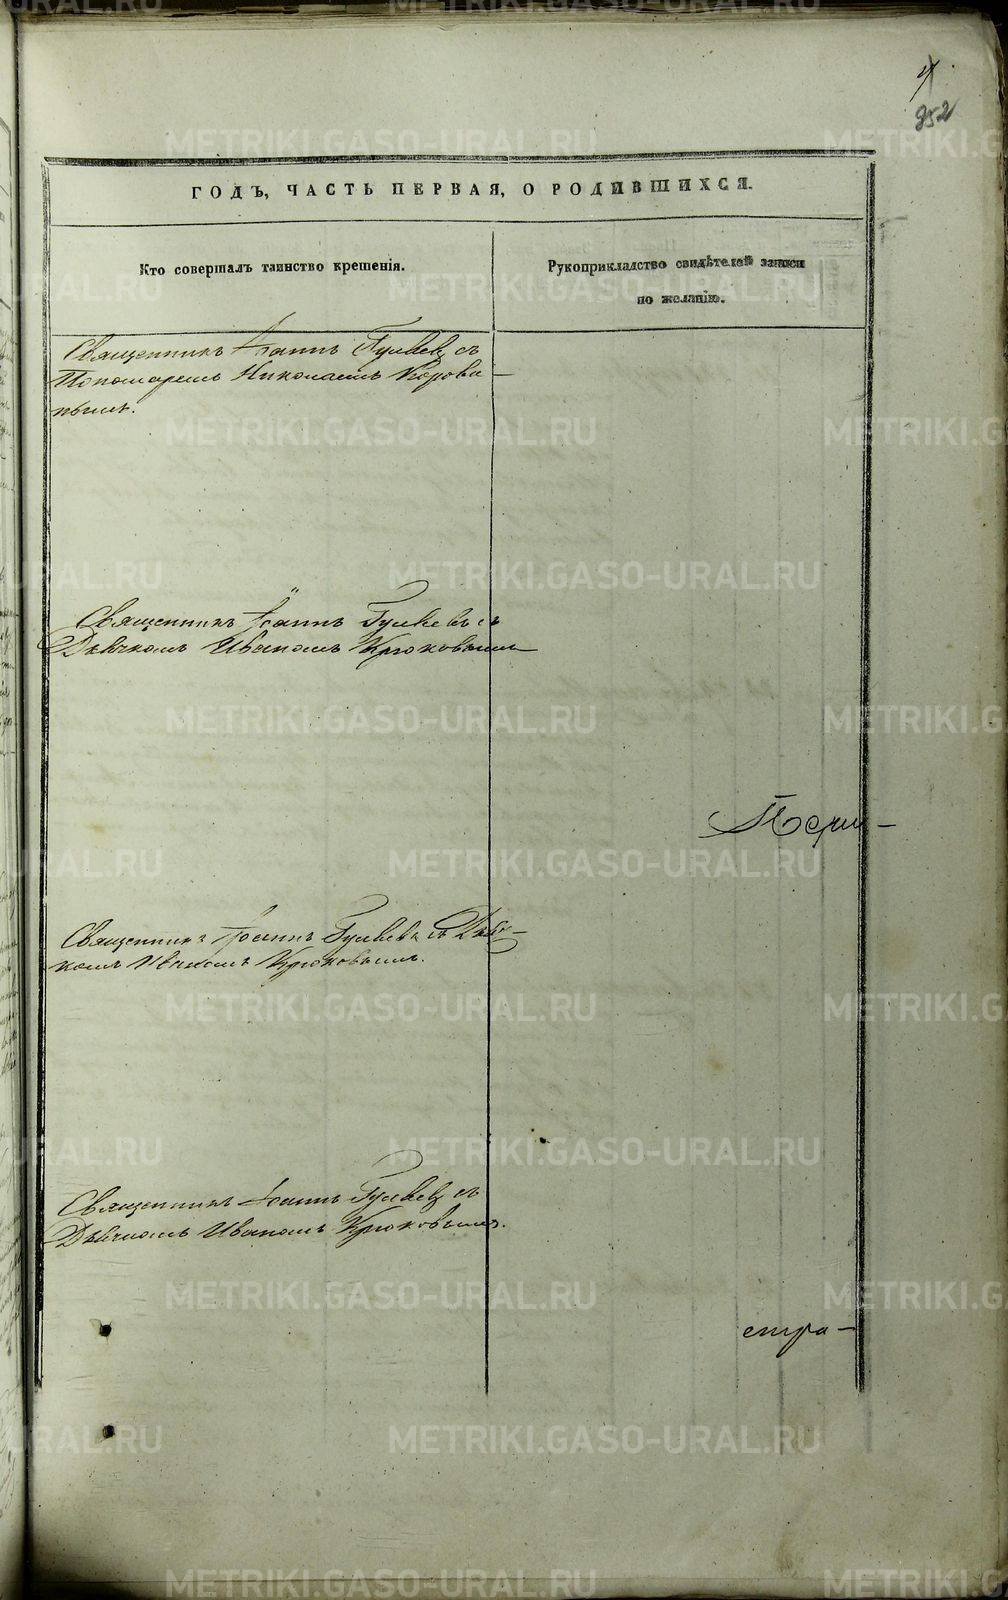 952
ГОДЪ, ЧАСТЬ ПЕРВАЯ, О РОДИВШИХСЯ.
Кто совершалъ таинство крещенія.
Рукоприкладство свидѣтелей записи
по желанію.
Священникъ Іоаннъ Гуляевъ съ
Пономаремъ Николаемъ Корова
нымъ.
Священникъ Іоаннъ Гуляевъ съ
Дьячкомъ Иваномъ Крюковымъ
Перм-
Священникъ Іоаннъ Гуляевъ съ Дьяч-
комъ Иваномъ Крюковымъ.
Священникъ Іоаннъ Гуляевъ съ
Дьячкомъ Иваномъ Крюковымъ.
стра-
METRIKI.GASO-URAL.RU